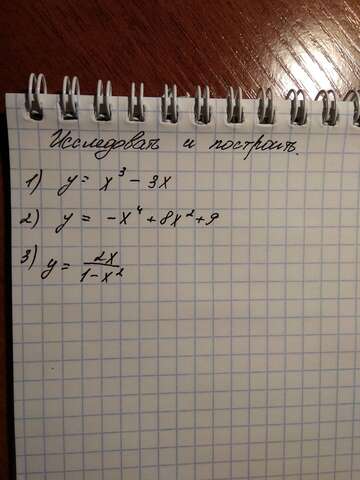 Исследовать и построить.
1) y = x³ - 3x
2) y = -x⁴ + 8x² + 9
3) y = 2x / 1-x²